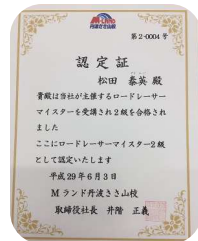 M Land
丹波ささ山校
第2-0004号
認定証
松田 泰英 殿
貴殿は当社が主催するロードレーサー
マイスターを受講され2級を合格され
ました
ここにロードレーサーマイスター2級
として認定いたします
平成29年6月3日
Mランド丹波ささ山校
取締役社長 井階 正義